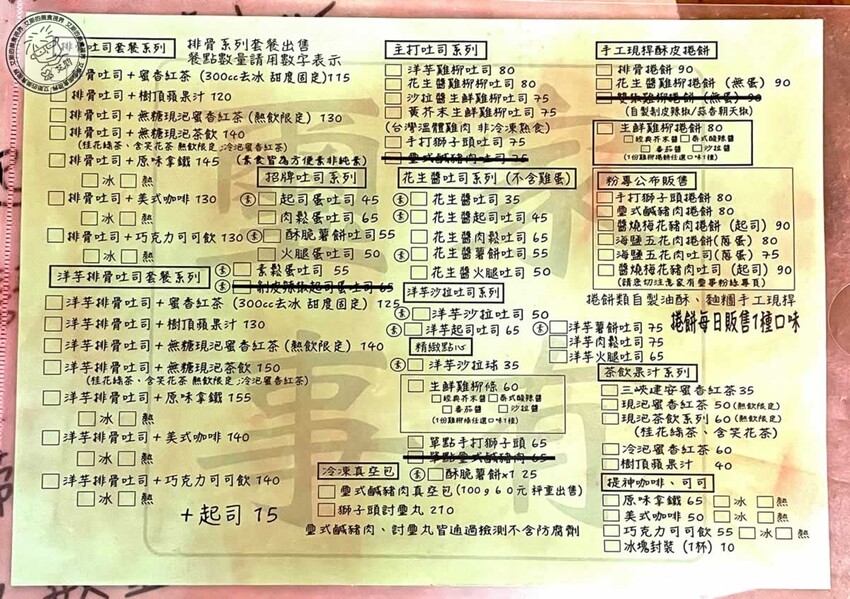 排骨吐司套餐系列
排骨系列套餐出售
餐點數量請用數字表示
排骨吐司+蜜香紅茶 (300cc去冰 甜度固定)115
排骨吐司+樹頂蘋果汁 120
排骨吐司+無糖現泡蜜香紅茶(熱飲限定) 130
排骨吐司+無糖現泡茶飲 140
(桂花綠茶、含笑花茶 熱飲限定;冷泡蜜香紅茶)
排骨吐司+原味拿鐵 145
(素食皆為方便素非純素)
冰 熱
排骨吐司+美式咖啡 130
冰 熱
排骨吐司+巧克力可可飲 130
冰 熱
招牌吐司系列
素 起司蛋吐司 45
肉鬆蛋吐司 65
素 酥脆薯餅吐司55
火腿蛋吐司 50
素 素鬆蛋吐司 55
素 剝皮辣椒起司蛋吐司 65
洋芋排骨吐司套餐系列
洋芋排骨吐司+蜜香紅茶 (300cc去冰 甜度固定) 125
洋芋排骨吐司+樹頂蘋果汁 130
洋芋排骨吐司+無糖現泡蜜香紅茶(熱飲限定) 140
洋芋排骨吐司+無糖現泡茶飲 150
(桂花綠茶、含笑花茶 熱飲限定;冷泡蜜香紅茶)
洋芋排骨吐司+原味拿鐵 155
冰 熱
洋芋排骨吐司+美式咖啡 140
冰 熱
洋芋排骨吐司+巧克力可可飲 140
冰 熱
+起司 15
主打吐司系列
洋芋雞柳吐司 80
花生醬雞柳吐司 80
沙拉醬生鮮雞柳吐司 75
黃芥末生鮮雞柳吐司 75
(台灣溫體雞肉 非冷凍熟食)
手打獅子頭吐司 75
疊式鹹豬肉吐司 75
花生醬吐司系列(不含雞蛋)
素 花生醬吐司 35
素 花生醬起司吐司 45
花生醬肉鬆吐司 65
素 花生醬薯餅吐司 55
花生醬火腿吐司 50
洋芋沙拉吐司系列
素 洋芋沙拉吐司 50
素 洋芋起司吐司 65
素 洋芋薯餅吐司 75
洋芋肉鬆吐司 75
洋芋火腿吐司 65
精緻點心
素 洋芋沙拉球 35
生鮮雞柳條 60
經典芥末醬 泰式酸辣醬
番茄醬 沙拉醬
(1份雞柳條任選口味1種)
單點手打獅子頭 65
單點疊式鹹豬肉 65
素 酥脆薯餅x1 25
冷凍真空包
疊式鹹豬肉真空包(100g60元 秤重出售)
獅子頭討疊丸 210
疊式鹹豬肉、討疊丸皆通過檢測不含防腐劑
手工現桿酥皮捲餅
排骨捲餅 90
花生醬雞柳捲餅 (無蛋) 90
雙椒雞柳捲餅 (無蛋) 90
(自製剝皮辣椒/蒜香朝天椒)
生鮮雞柳捲餅 80
經典芥末醬 泰式酸辣醬
番茄醬 沙拉醬
(1份雞柳捲餅任選口味1種)
粉專公布販售
手打獅子頭捲餅 80
疊式鹹豬肉捲餅 80
醬燒梅花豬肉捲餅 (起司) 90
海鹽五花肉捲餅(蔥蛋) 80
海鹽五花肉吐司(蔥蛋) 75
醬燒梅花豬肉吐司 (起司) 90
捲餅類自製油酥、麵糰手工現桿
捲餅每日販售1種口味
茶飲果汁系列
三峽建安蜜香紅茶35
現泡蜜香紅茶 50 (熱飲限定)
現泡茶飲系列 60 (熱飲限定)
(桂花綠茶、含笑花茶)
冷泡蜜香紅茶 60
樹頂蘋果汁 40
提神咖啡、可可
原味拿鐵 65 冰 熱
美式咖啡 50 冰 熱
巧克力可可飲 55 冰 熱
冰塊封裝 (1杯) 10